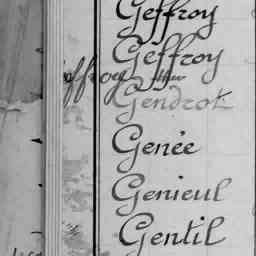 Geffroy
Geffroy
Gendrot
Genée
Genieul
Gentil